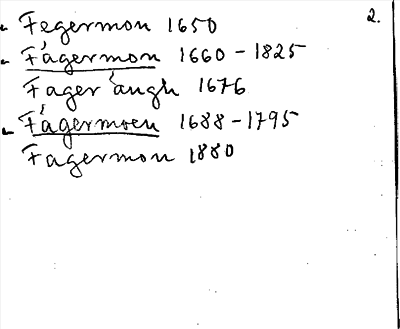 Fegermon 1650
2.
Fágermon 1660-1825
Fager ångh 1676
Fágermoen 1688-1795
Fagermon 1880